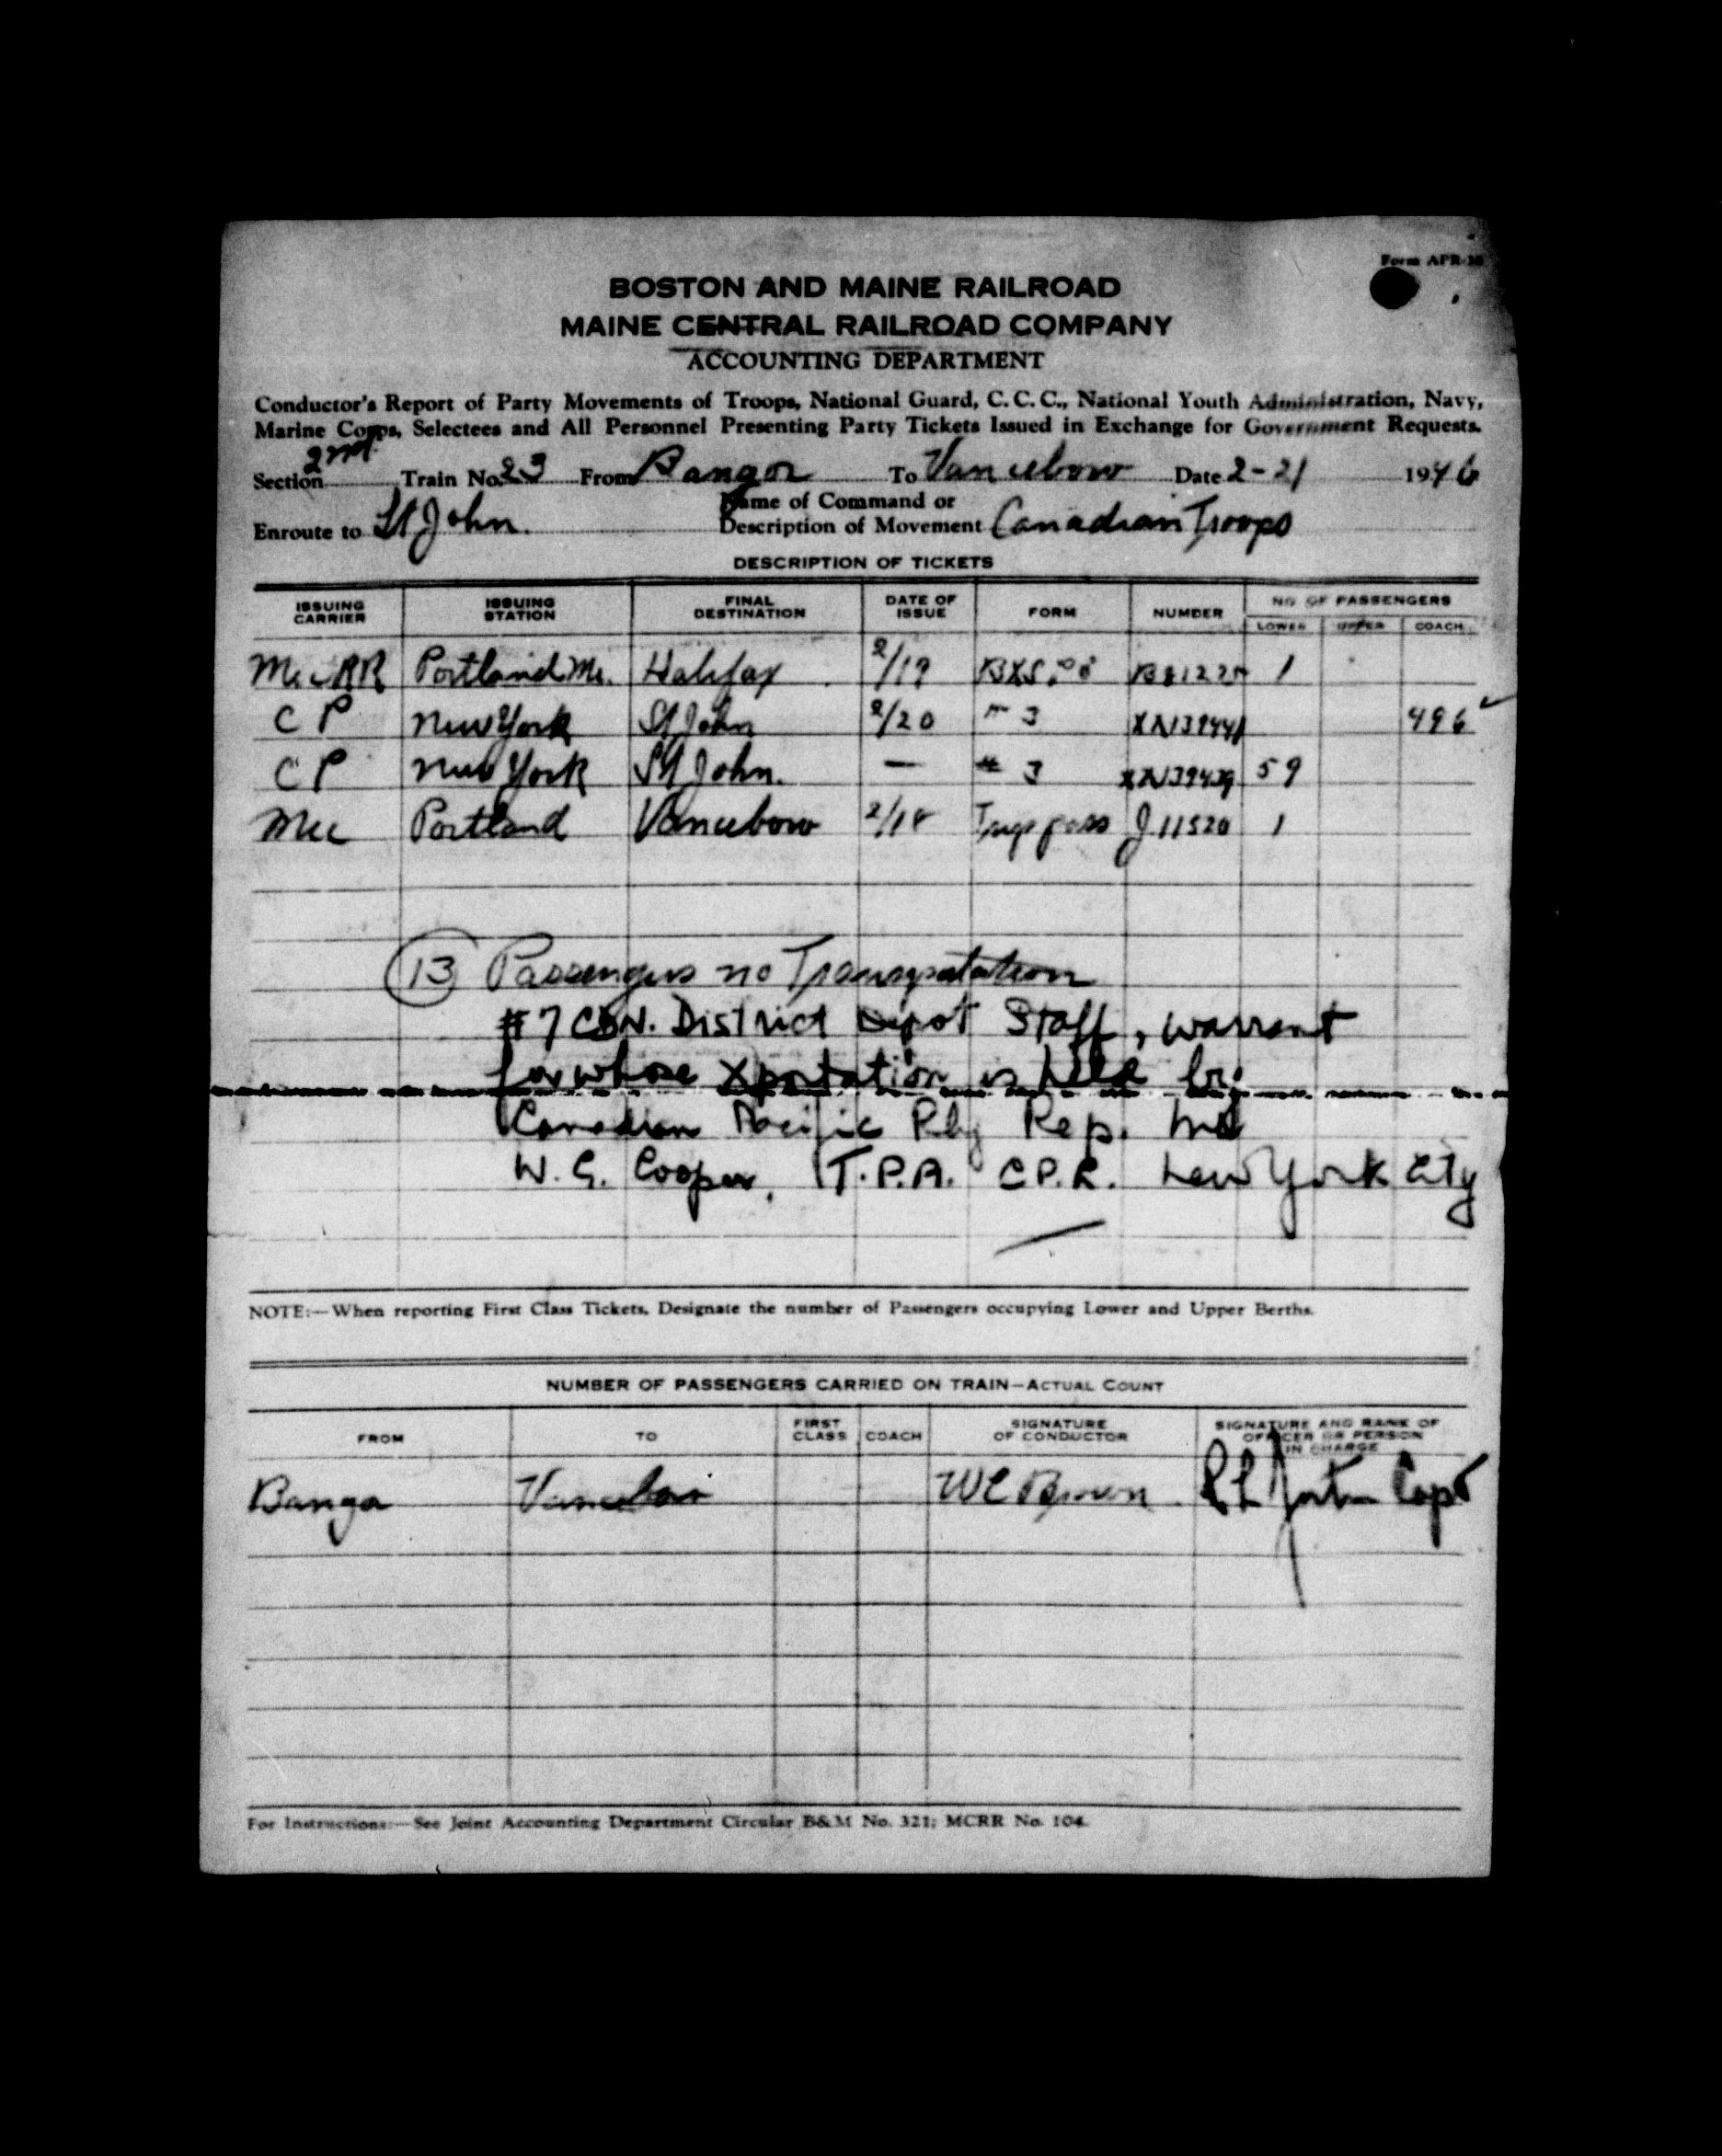 Form APR-30
BOSTON AND MAINE RAILROAD
MAINE CENTRAL RAILROAD COMPANY
ACCOUNTING DEPARTMENT
Conductor's Report of Party Movements of Troops, National Guard, C. C. C., National Youth Administration, Navy,
Marine Corps, Selectees and All Personnel Presenting Party Tickets Issued in Exchange for Government Requests.
Section 2nd Train No. 23 From Bangor To Vanceboro Date 2-21 1946
Enroute to St John. Name of Command or Description of Movement Canadian Troops
DESCRIPTION OF TICKETS
ISSUING CARRIER ISSUING STATION FINAL DESTINATION DATE OF ISSUE FORM NUMBER NO OF PASSENGERS
LOWER UPPER COACH
McRR Portland Me. Halifax 2/19 1
C P New York St John 2/20 3 496
C P New York St John. — # 3 59
Mec Portland Vanceboro 2/18 Trip pass J 11520 1
13 Passengers no Transportation
#7 CDN. District Depot Staff, warrant
for whose Xportation is held by
Canadian Pacific Rly Rep. Mr
W. G. Cooper, T.P.A. C.P.R. New York City
NOTE:—When reporting First Class Tickets, Designate the number of Passengers occupying Lower and Upper Berths.
NUMBER OF PASSENGERS CARRIED ON TRAIN—ACTUAL COUNT
FROM TO FIRST CLASS COACH SIGNATURE OF CONDUCTOR SIGNATURE AND RANK OF OFFICER OR PERSON IN CHARGE
Bangor Vanceboro WE Brown Capt
For Instructions:—See Joint Accounting Department Circular B&M No. 321; MCRR No. 104.